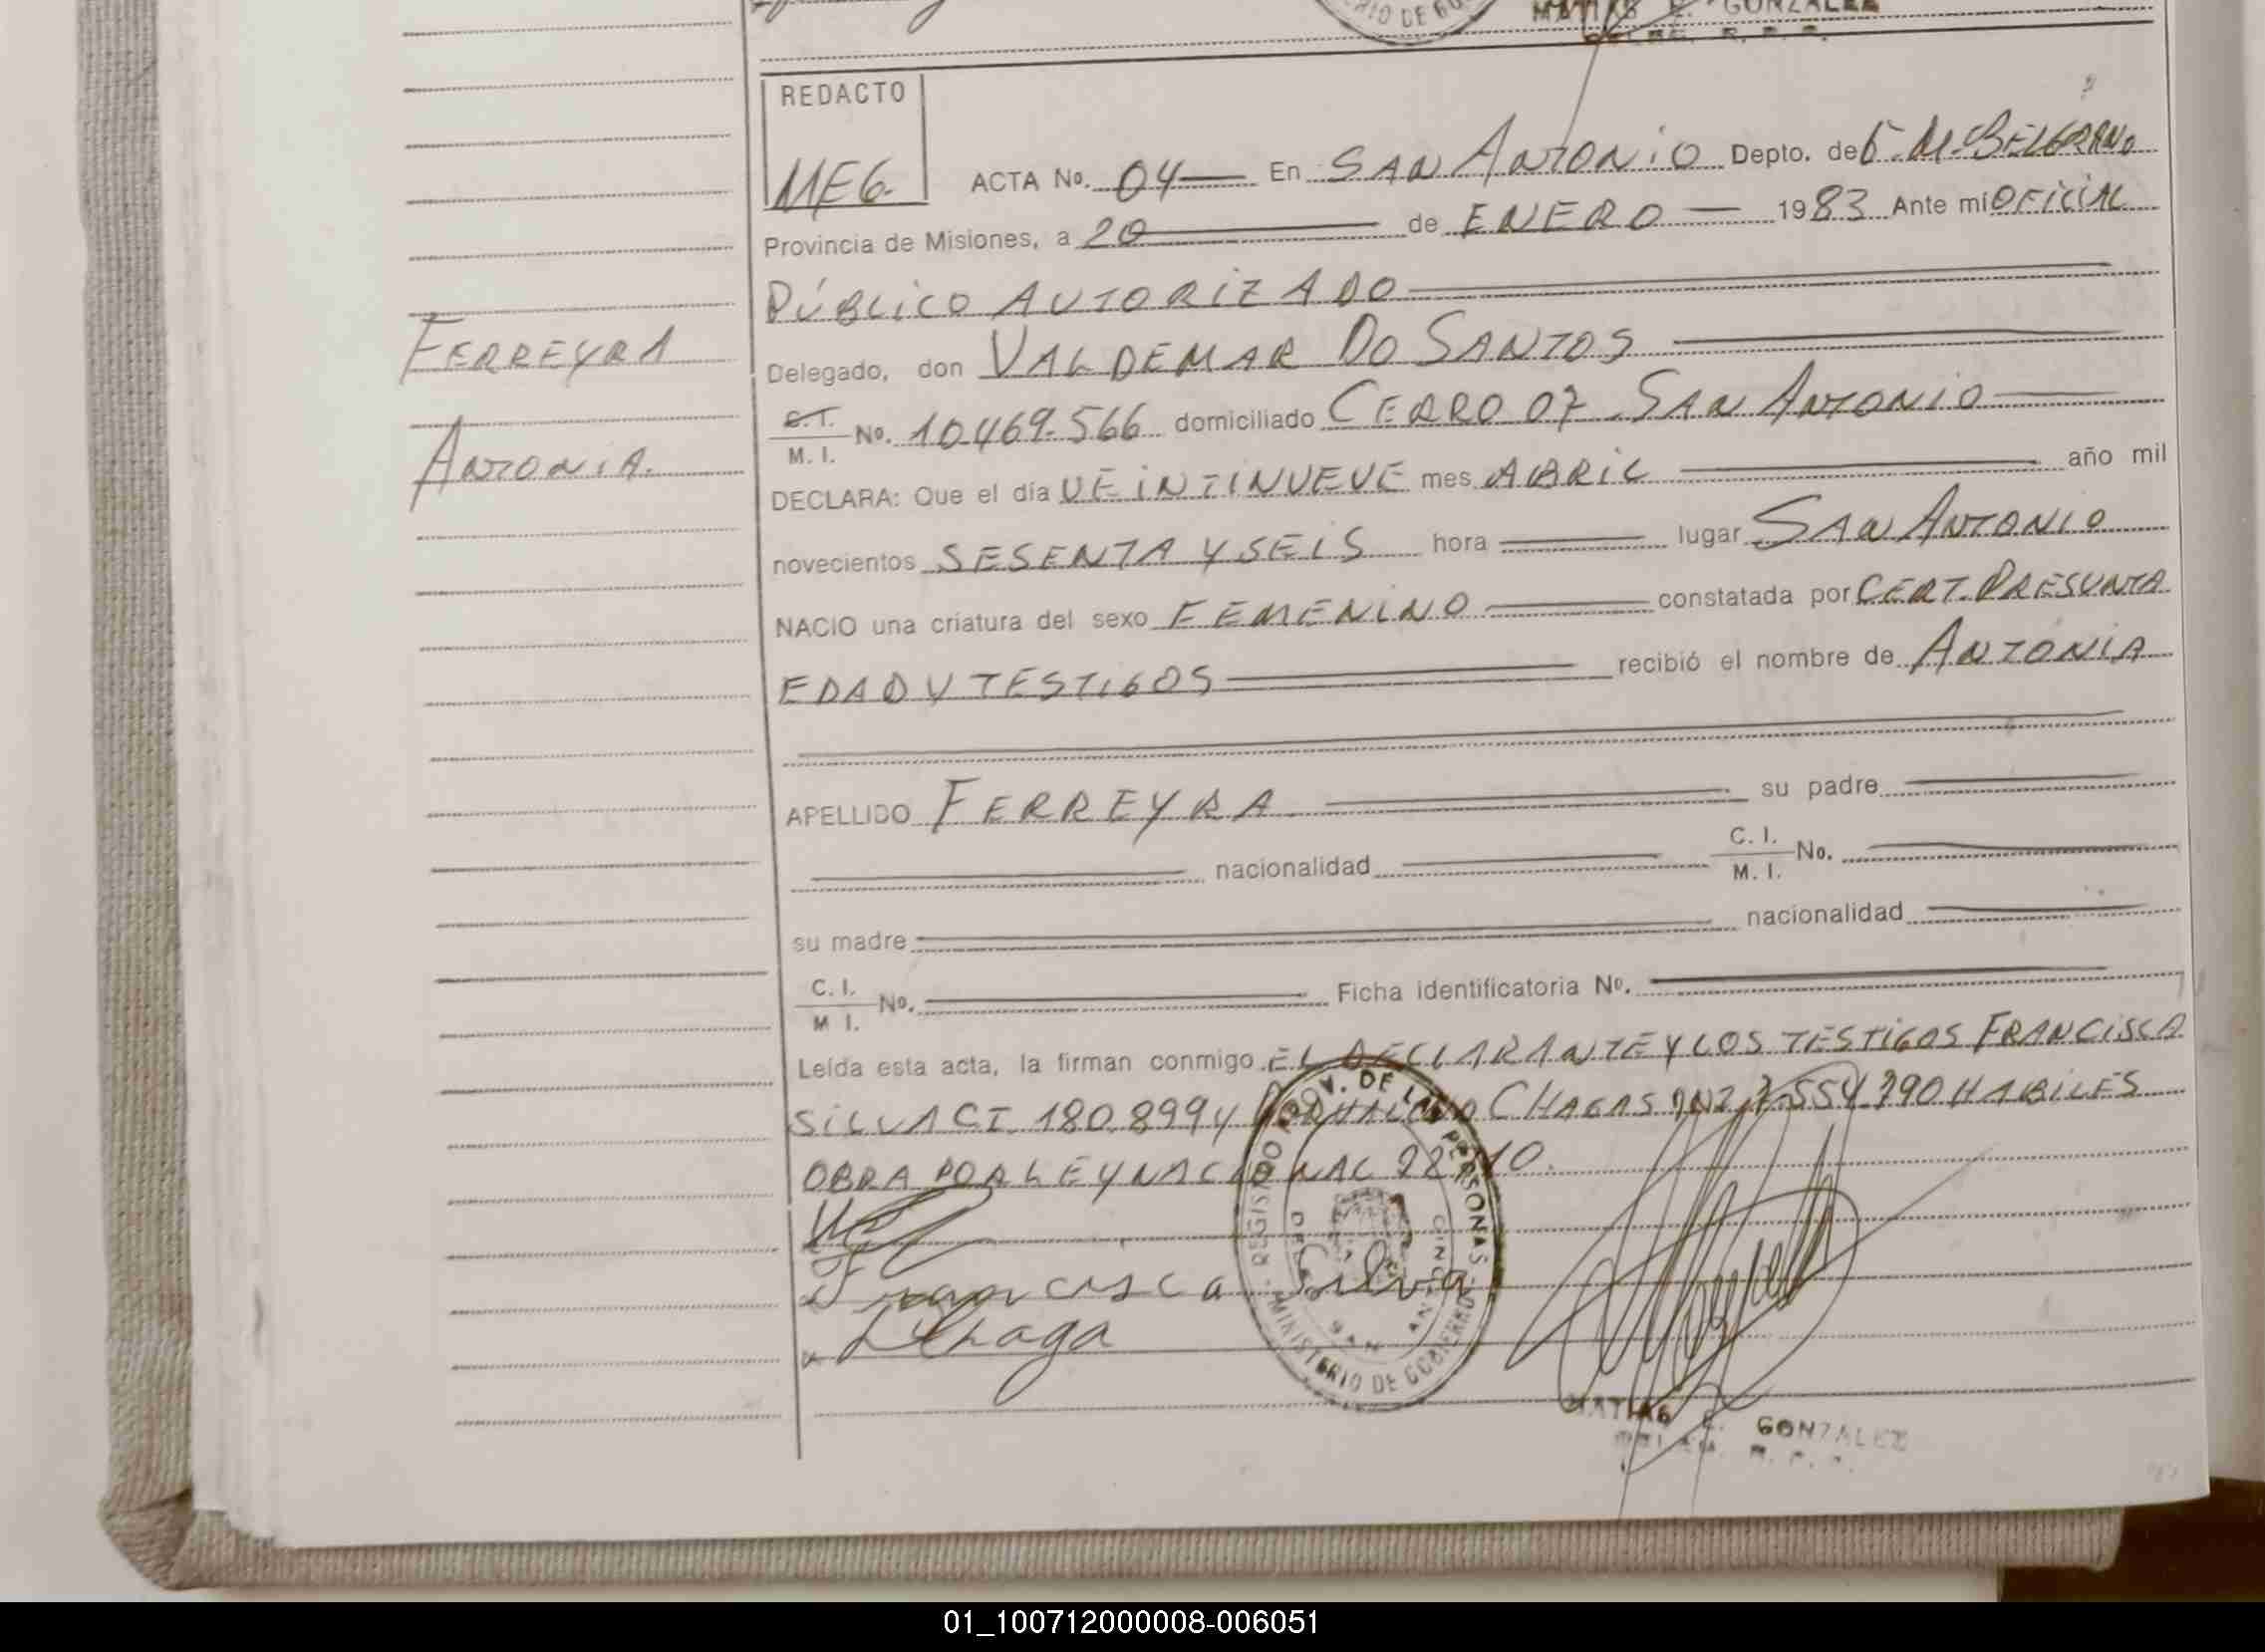 MATIAS E. GONZALEZ
DELEG. R. P. P.
REDACTO
MEG.
ACTA No. 04 En SAN ANTONIO Depto. de G. M. BELGRANO
Provincia de Misiones, a 20 de ENERO 1983 Ante mi OFICIAL
PÚBLICO AUTORIZADO
FERREYRA
Delegado, don VALDEMAR DO SANTOS
C.I.
M. I. No. 10469.566 domiciliado CERRO 07 SAN ANTONIO
ANTONIA.
DECLARA: Que el día VEINTINUEVE mes ABRIL año mil
novecientos SESENTA Y SEIS hora lugar SAN ANTONIO
NACIO una criatura del sexo FEMENINO constatada por CERT. PRESUNTA
EDAD Y TESTIGOS recibió el nombre de ANTONIA
APELLIDO FERREYRA su padre
nacionalidad C. I. M. I. No.
su madre nacionalidad
C. I. M I. No. Ficha identificatoria No.
Leída esta acta, la firman conmigo EL DECLARANTE Y LOS TESTIGOS FRANCISCA
SILVA CI. 180.899 Y CHAGAS 7.554.790 HABILES
OBRA POR LEY NACIONAL
REGIST DO PROV. DE LAS PERSONAS
MINISTERIO DE GOBIERNO
SAN
Francisca Silva
Chaga
MATIAS E. GONZALEZ
DELEG. R. P. P.
01_100712000008-006051